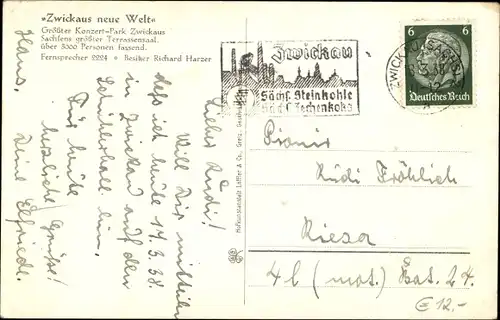 »Zwickaus neue Welt«
Größter Konzert-Park Zwickaus
Sachsens größter Terrassensaal,
über 3000 Personen fassend.
Fernsprecher 2224 • Besitzer Richard Harzer
Lieber Rudi!
Will Dir mitteilen
dass ich heute 17.3.38.
in Zwickau auf den
bin.
Für heute
herzliche Grüße!
Deine Elfriede.
Hans.
Zwickau
Sächs. Steinkohle
und Zechenkoks
ZWICKAU (SACHS)
6 6
Deutsches Reich
Pionier
Rudi Fröhlich
Riesa
4 (mot.) Bat. 24.
€ 12,-